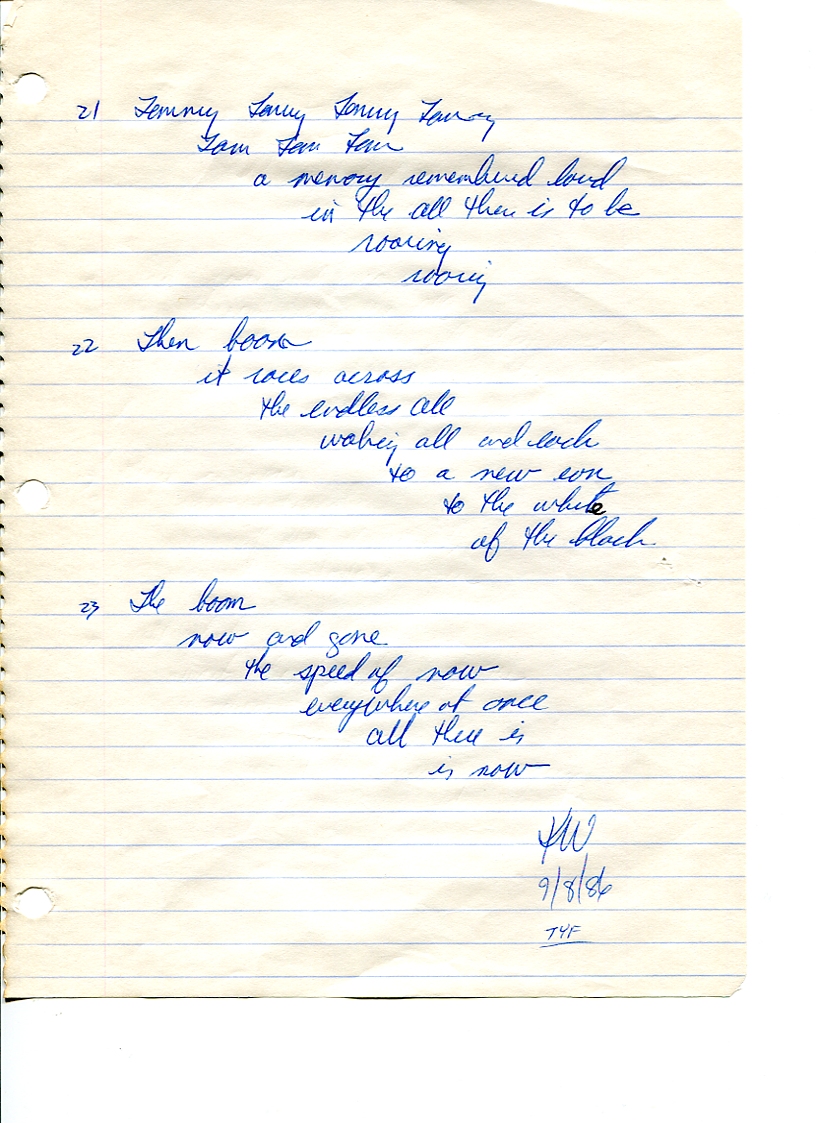 21 Tommy Tommy Tommy Tommy
Tom Tom Tom
a memory remembered loud
in the all there is to be
roaring
roaring
22 Then boom
it races across
the endless all
waking all and each
to a new eon
to the white
of the black
23 The boom
now and gone
the speed of now
everywhere at once
all there is
is now
KW
9/8/86
TYF